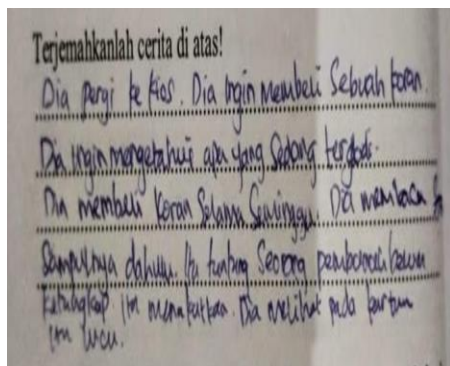 Terjemahkanlah cerita di atas!
Dia pergi ke kios. Dia ingin membeli sebuah koran.
Dia ingin mengetahui apa yang sedang terjadi.
Dia membeli koran selama seminggu. Dia membaca
sampulnya dahulu. Itu tentang seorang pembunuh belum
ketangkap itu menakutkan. Dia melihat pada kartun
itu lucu.